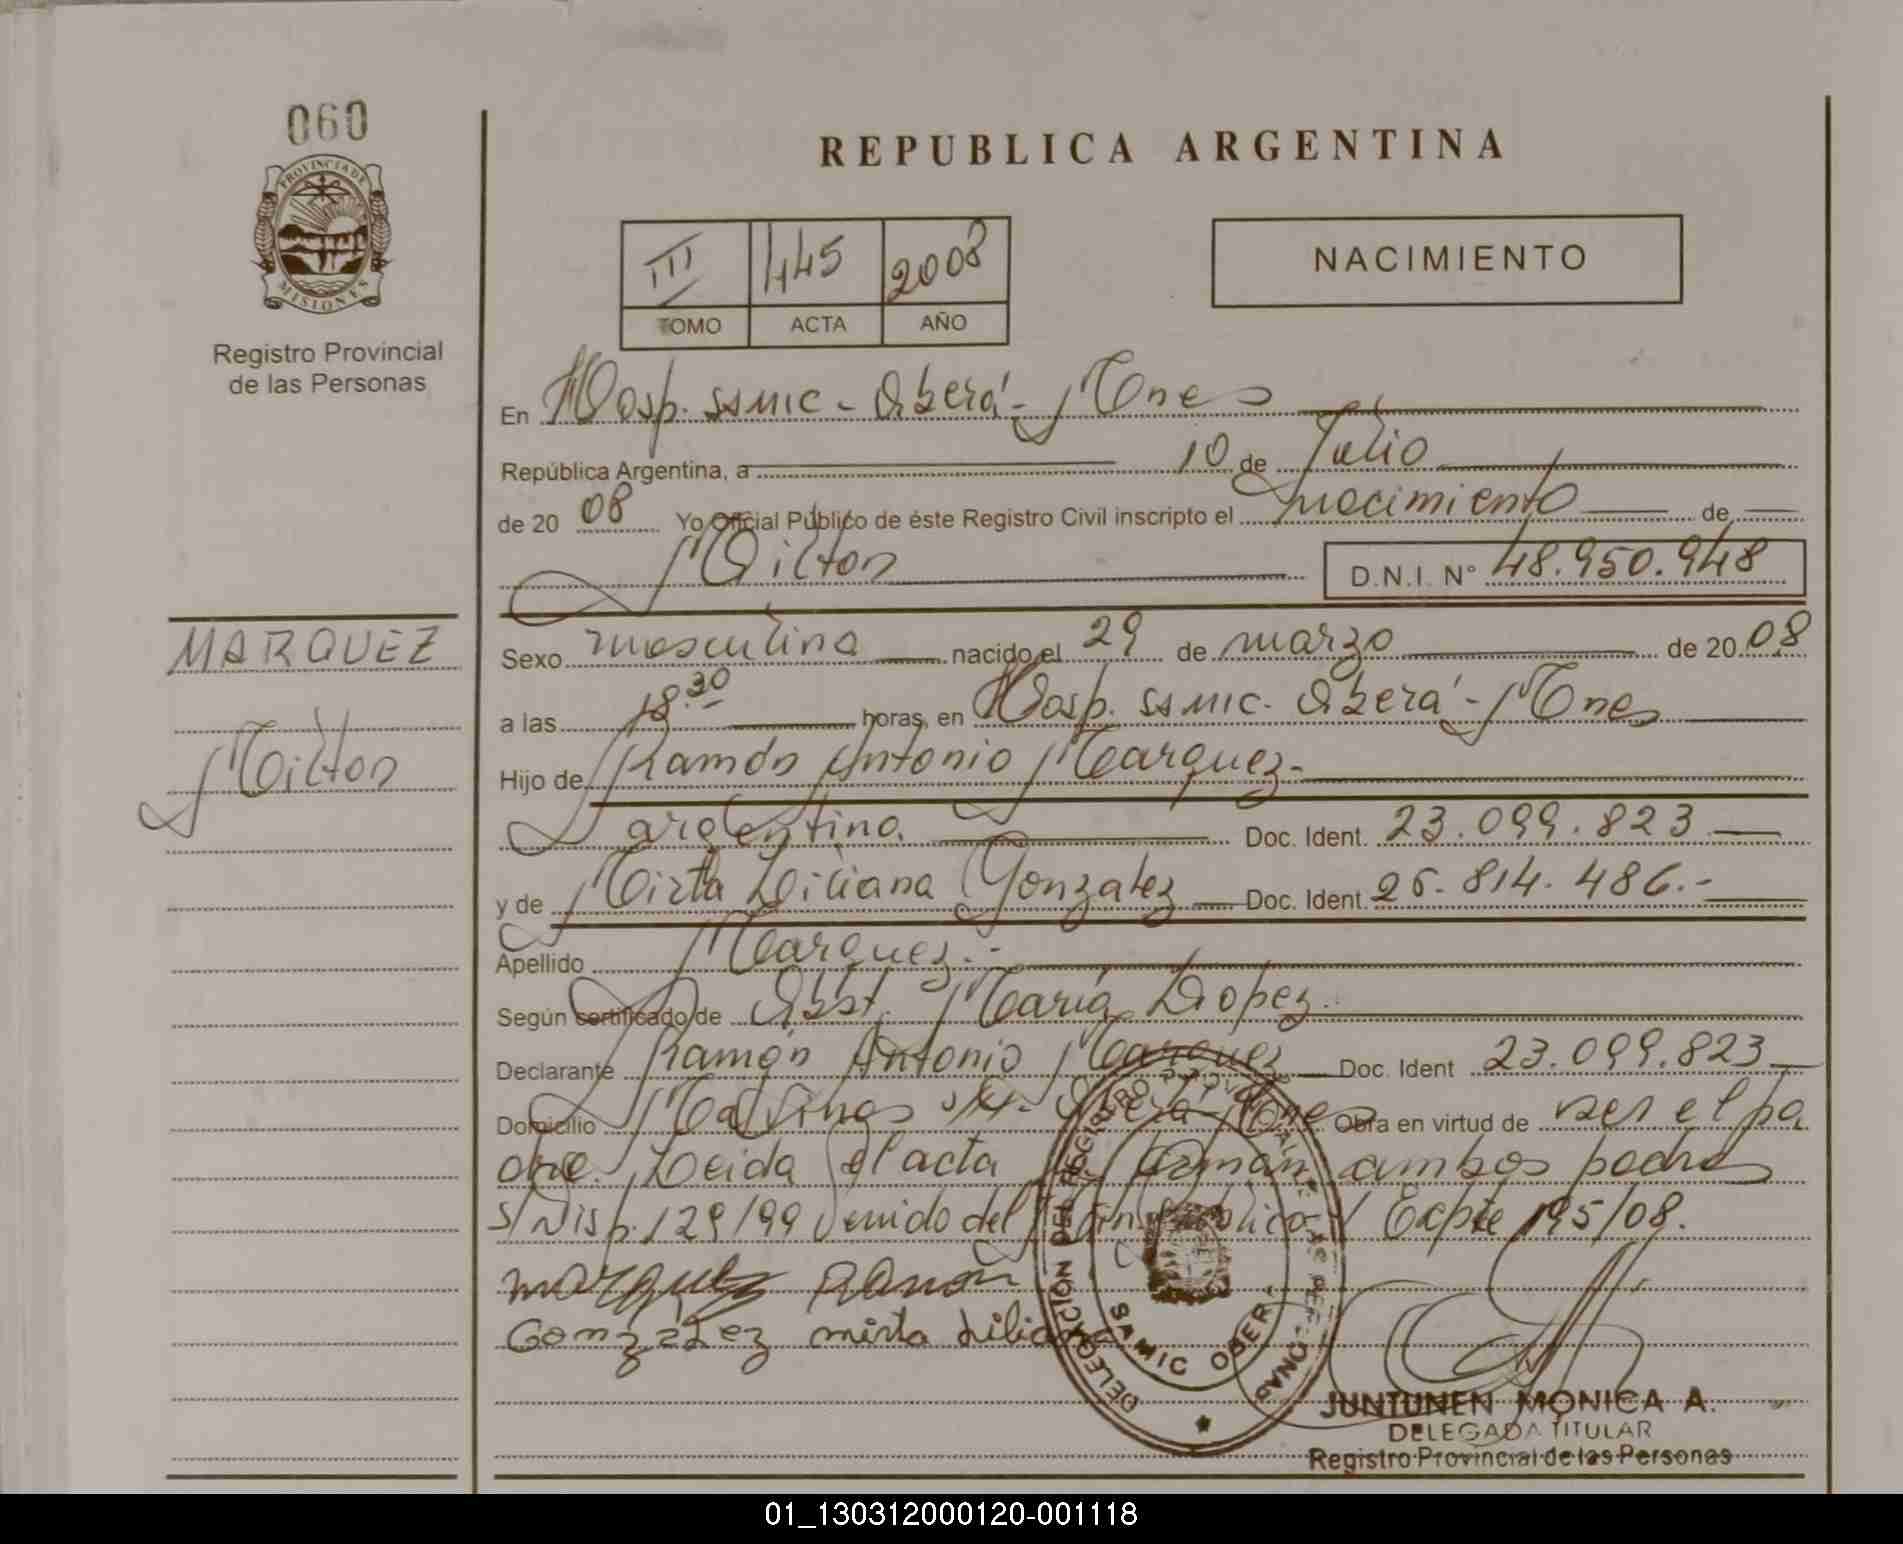 060
PROVINCIA DE
MISIONES
Registro Provincial
de las Personas
MARQUEZ
Milton
REPUBLICA ARGENTINA
III 445 2008
TOMO ACTA AÑO
NACIMIENTO
En Hosp. SAMIC - Oberá - Mnes
República Argentina, a 10 de Julio
de 20 08 Yo Oficial Público de éste Registro Civil inscripto el nacimiento de
Milton D.N.I. N° 48.950.948
Sexo masculino nacido el 29 de marzo de 20 08
a las 18.30 horas, en Hosp. SAMIC - Oberá - Mnes
Hijo de Ramón Antonio Marquez -
argentino. Doc. Ident. 23.099.823
y de Mirta Liliana Gonzalez Doc. Ident. 26.814.486.-
Apellido Marquez.-
Según certificado de Obst. María Lopez.
Declarante Ramón Antonio Marquez Doc. Ident 23.099.823
Domicilio Malvinas Oberá Mnes Obra en virtud de ser el pa
dre. Leida el acta la firman ambos padres
s/Disp. 129/99 venido del Expte 195/08.
Marquez Ramon
Gonzalez mirta liliana
DELEGACION DEL REGISTRO PROVINCIAL DE LAS PERSONAS
SAMIC OBERA
JUNTUNEN MONICA A.
DELEGADA TITULAR
Registro Provincial de las Personas
01_130312000120-001118